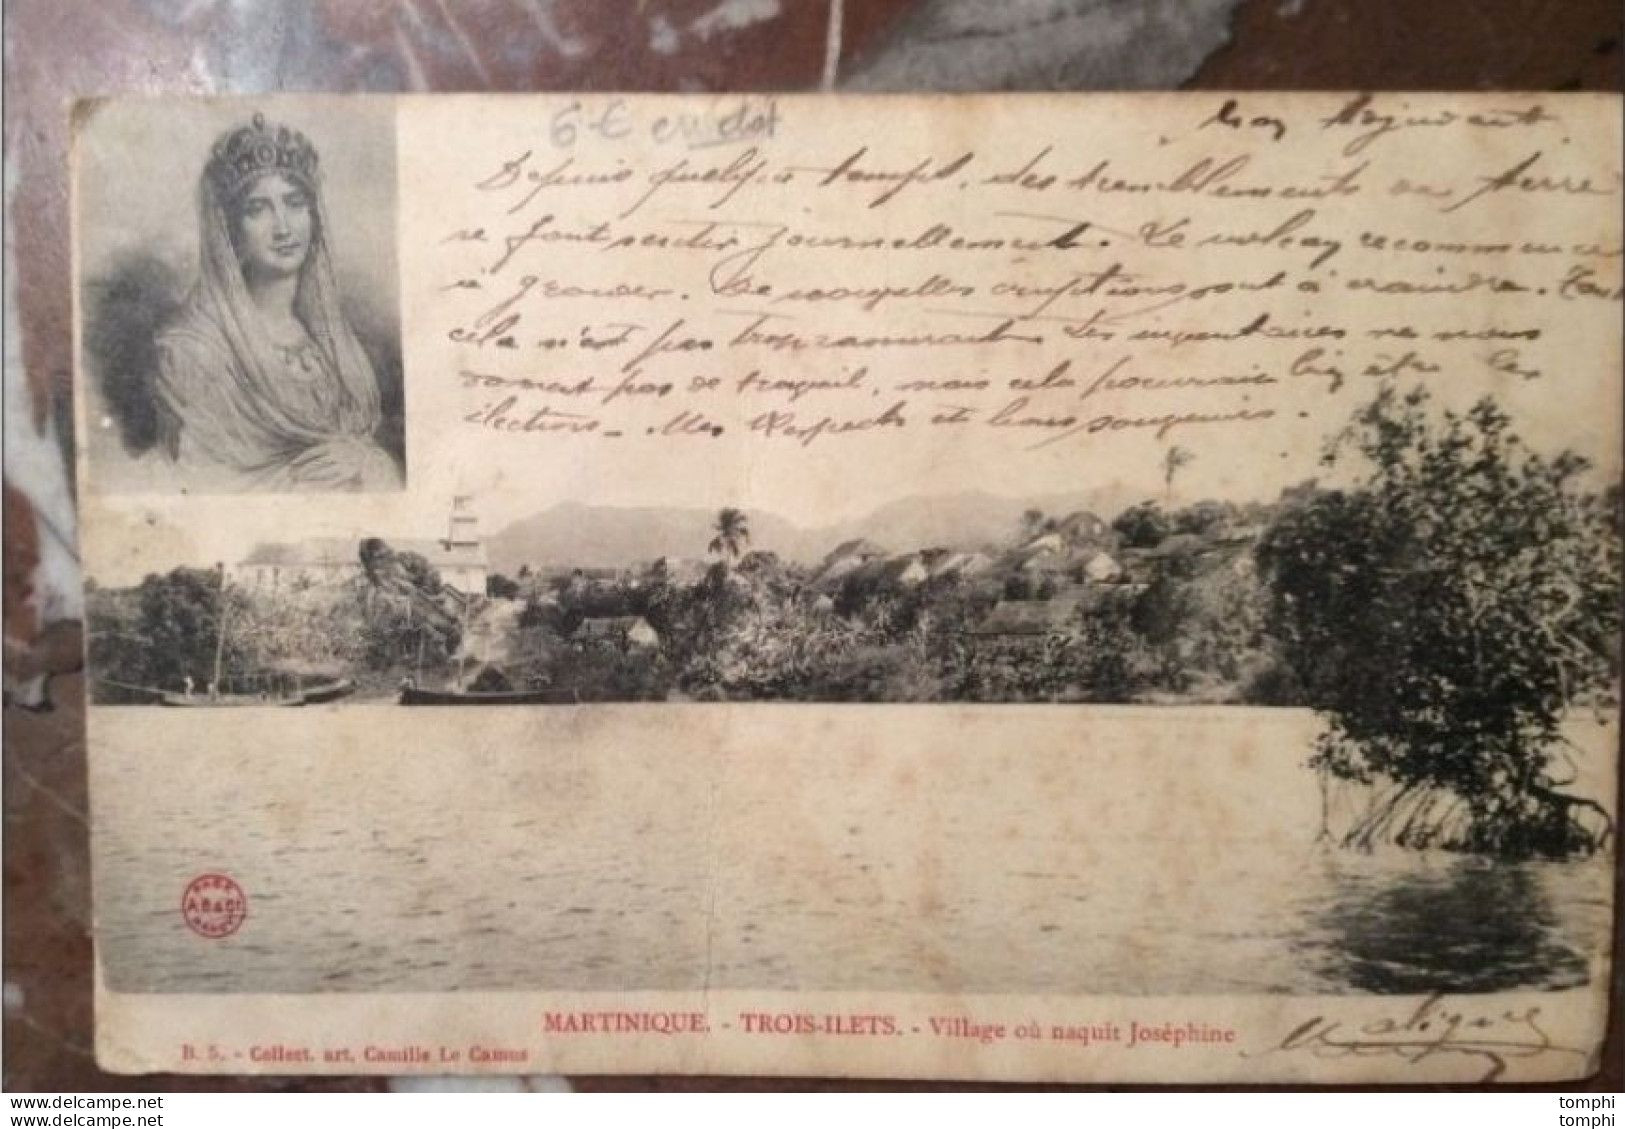 6 €
Mon Adjudant
Depuis quelque temps, des tremblements de terre
se font sentir journellement. Le volcan recommence
à gronder. De nouvelles éruptions sont à craindre. Tout
cela n'est pas trop rassurant. Les inventaires ne nous
donnent pas de travail, mais cela pourrait bien être les
élections. Mes Respects et bons souvenirs.
A B & Cie
NANCY
MARTINIQUE. - TROIS-ILETS. - Village où naquit Joséphine
B. 5. - Collect. art. Camille Le Camus
www.delcampe.net
www.delcampe.net
tomphi
tomphi